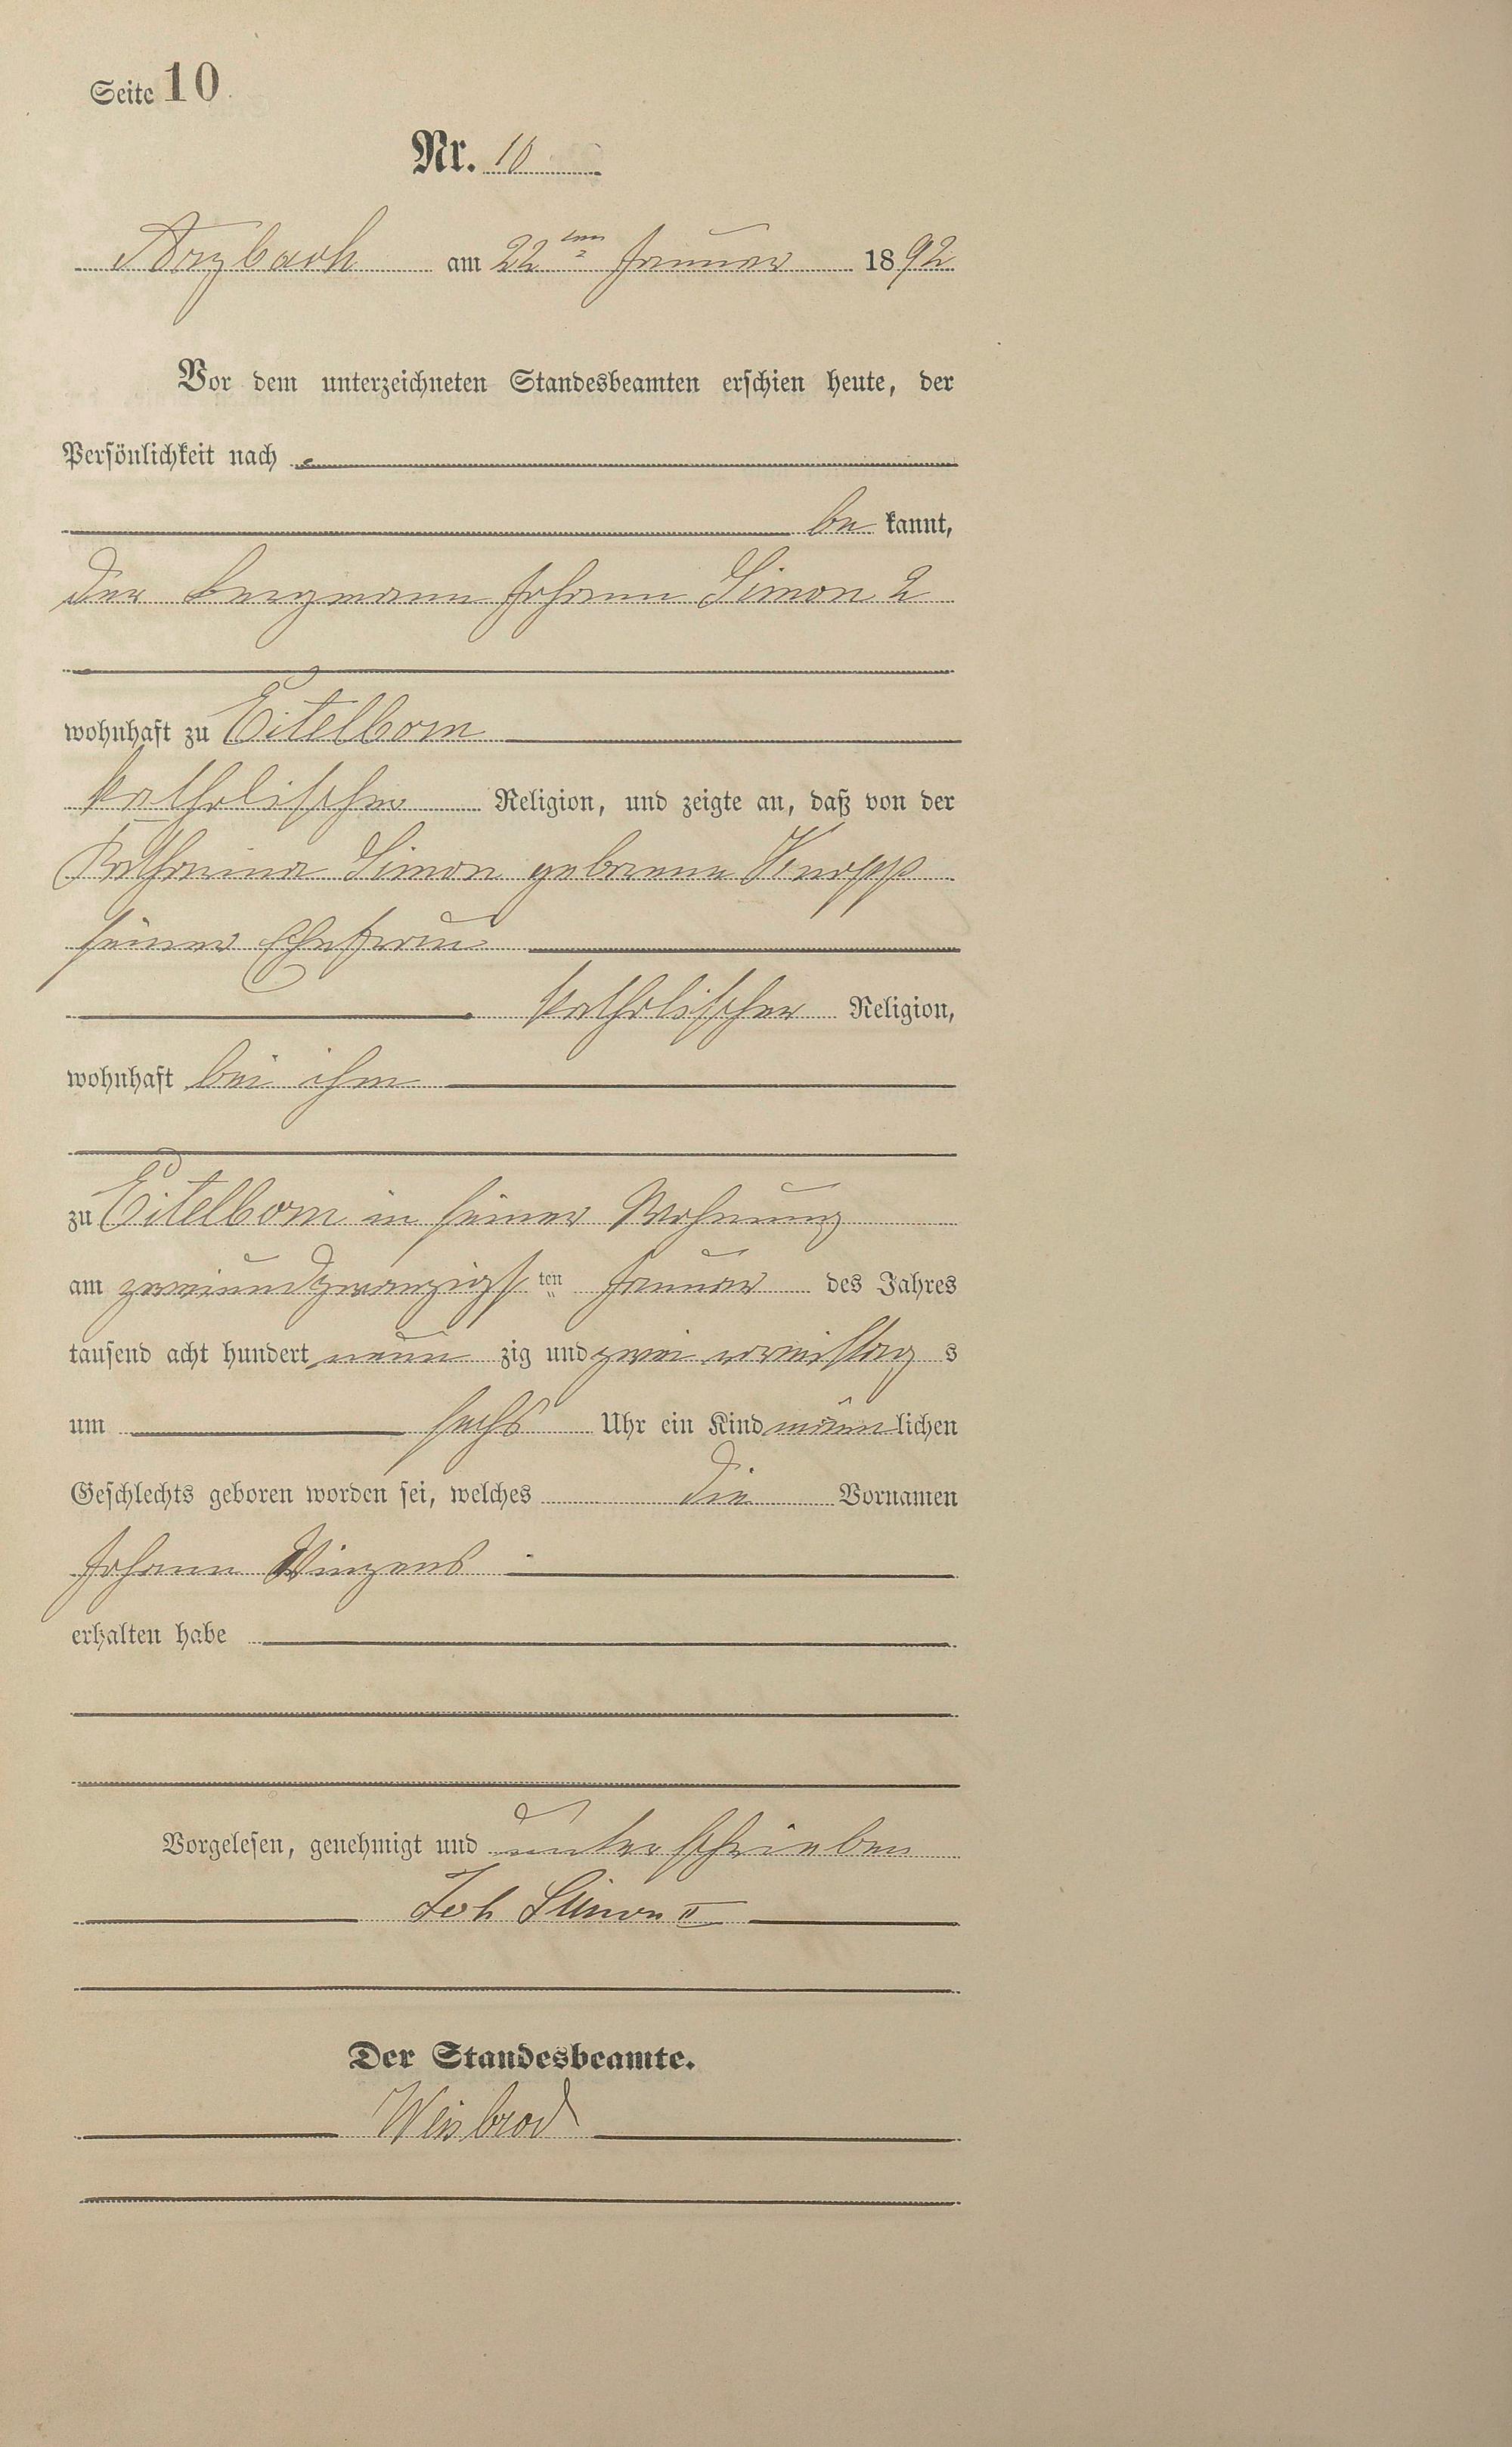 Seite 10.
Nr. 10
Arzbach am 22ten Januar 1892
Vor dem unterzeichneten Standesbeamten erschien heute, der
Persönlichkeit nach
be kannt,
der Bergmann Johann Simon 2
wohnhaft zu Eitelborn
katholischer Religion, und zeigte an, daß von der
Katharina Simon geborene Knopp
seiner Ehefrau
katholischer Religion,
wohnhaft bei ihm
zu Eitelborn in seiner Wohnung
am zweiundzwanzigsten Januar des Jahres
tausend acht hundert neun zig und zwei vormittags
um sechs Uhr ein Kind männlichen
Geschlechts geboren worden sei, welches die Vornamen
Johann Vinzens
erhalten habe
Vorgelesen, genehmigt und unterschrieben
Joh Simon II
Der Standesbeamte.
Weisbrod